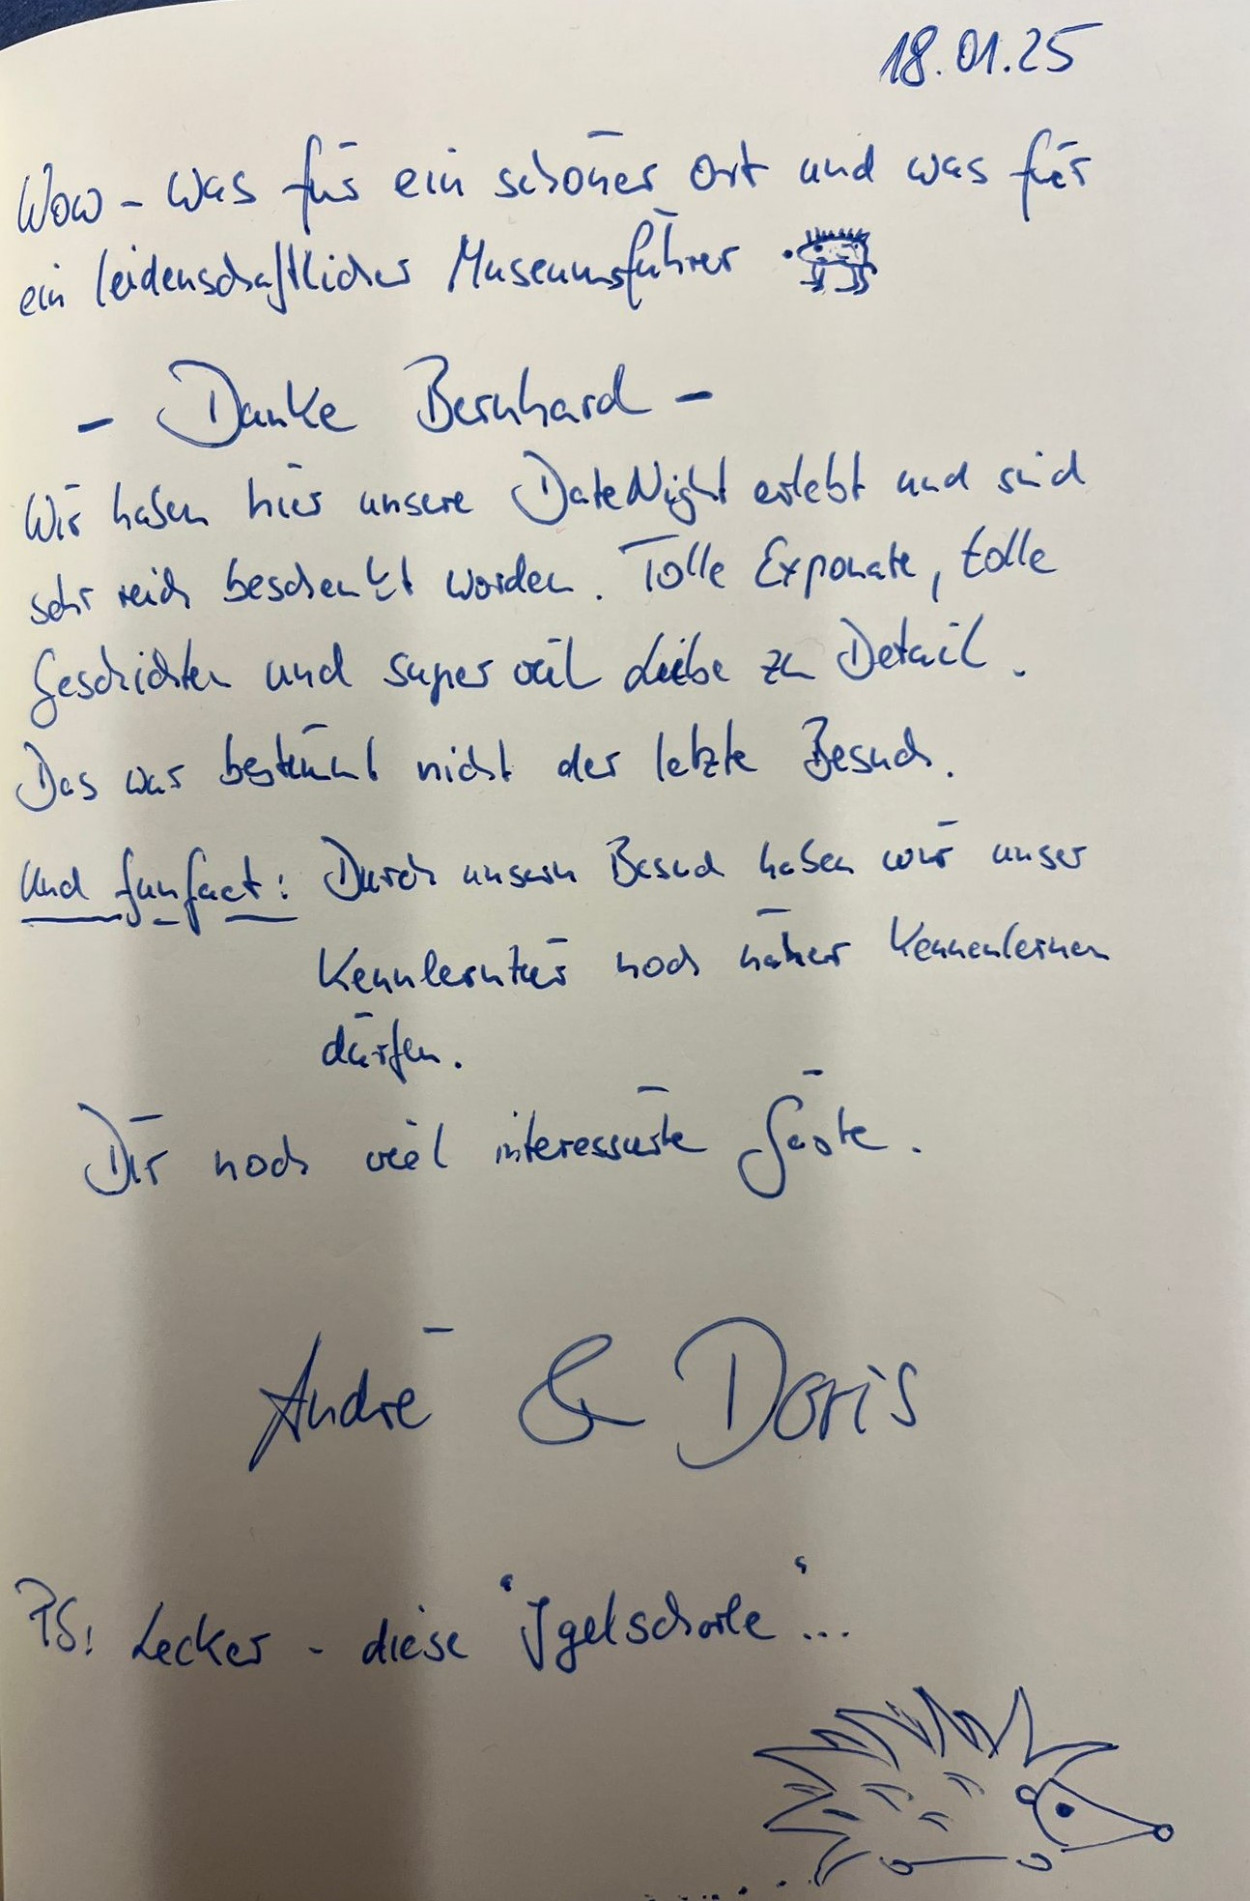 18.01.25
Wow - was für ein schöner Ort und was für
ein leidenschaftlicher Museumsführer
- Danke Bernhard -
Wir haben hier unsere DateNight erlebt und sind
sehr reich beschenkt worden. Tolle Exponate, tolle
Geschichten und super viel Liebe zu Detail.
Das war bestimmt nicht der letzte Besuch.
Und funfact: Durch unsern Besuch haben wir unser
Kennlerntier noch näher kennenlernen
dürfen.
Dir noch viel interessierte Gäste.
André & Doris
PS: Lecker - diese "Igelschorle"...